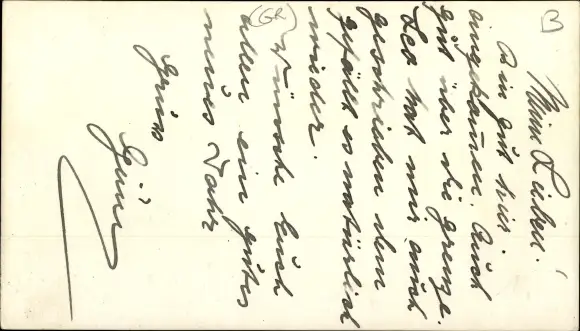 B
Meine Lieben!
Bin gut hier
angekommen. Auch
gut über die Grenze.
Leo hat mir auch
geschrieben dem
gefällt es natürlich
wieder.
(GR)
Wünsche Euch
allen ein gutes
neues Jahr
Gruss